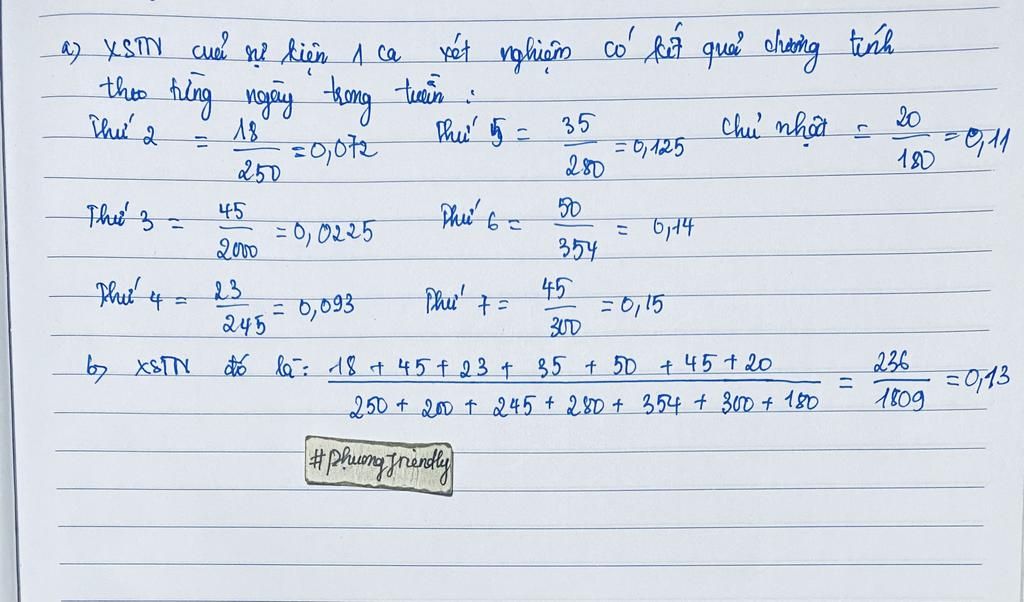 a) XSTN cuả sự kiện 1 ca xét nghiệm có kết quả dương tính
theo từng ngày trong tuần :
Thứ 2 = 18/250 = 0,072 Thứ 5 = 35/280 = 0,125 Chủ nhật = 20/180 = 0,11
Thứ 3 = 45/2000 = 0,0225 Thứ 6 = 50/354 = 0,14
Thứ 4 = 23/245 = 0,093 Thứ 7 = 45/300 = 0,15
b) XSTN đó là: (18 + 45 + 23 + 35 + 50 + 45 + 20)/(250 + 200 + 245 + 280 + 354 + 300 + 180) = 236/1809 = 0,13
#phuongfriendly